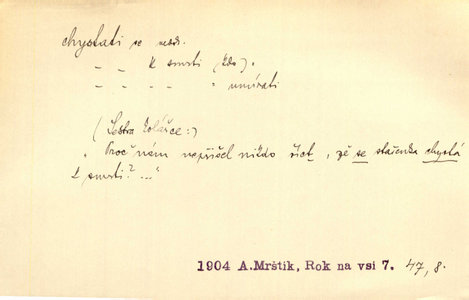 chystati se nedk.
— — k smrti (kdo).
— — — — " umírati
(Sestra Kolářce:)
„Proč nám nepřišel nikdo říct, že se stařenka chystá
k smrti? ..."
1904 A. Mrštík, Rok na vsi 7. 47, 8.